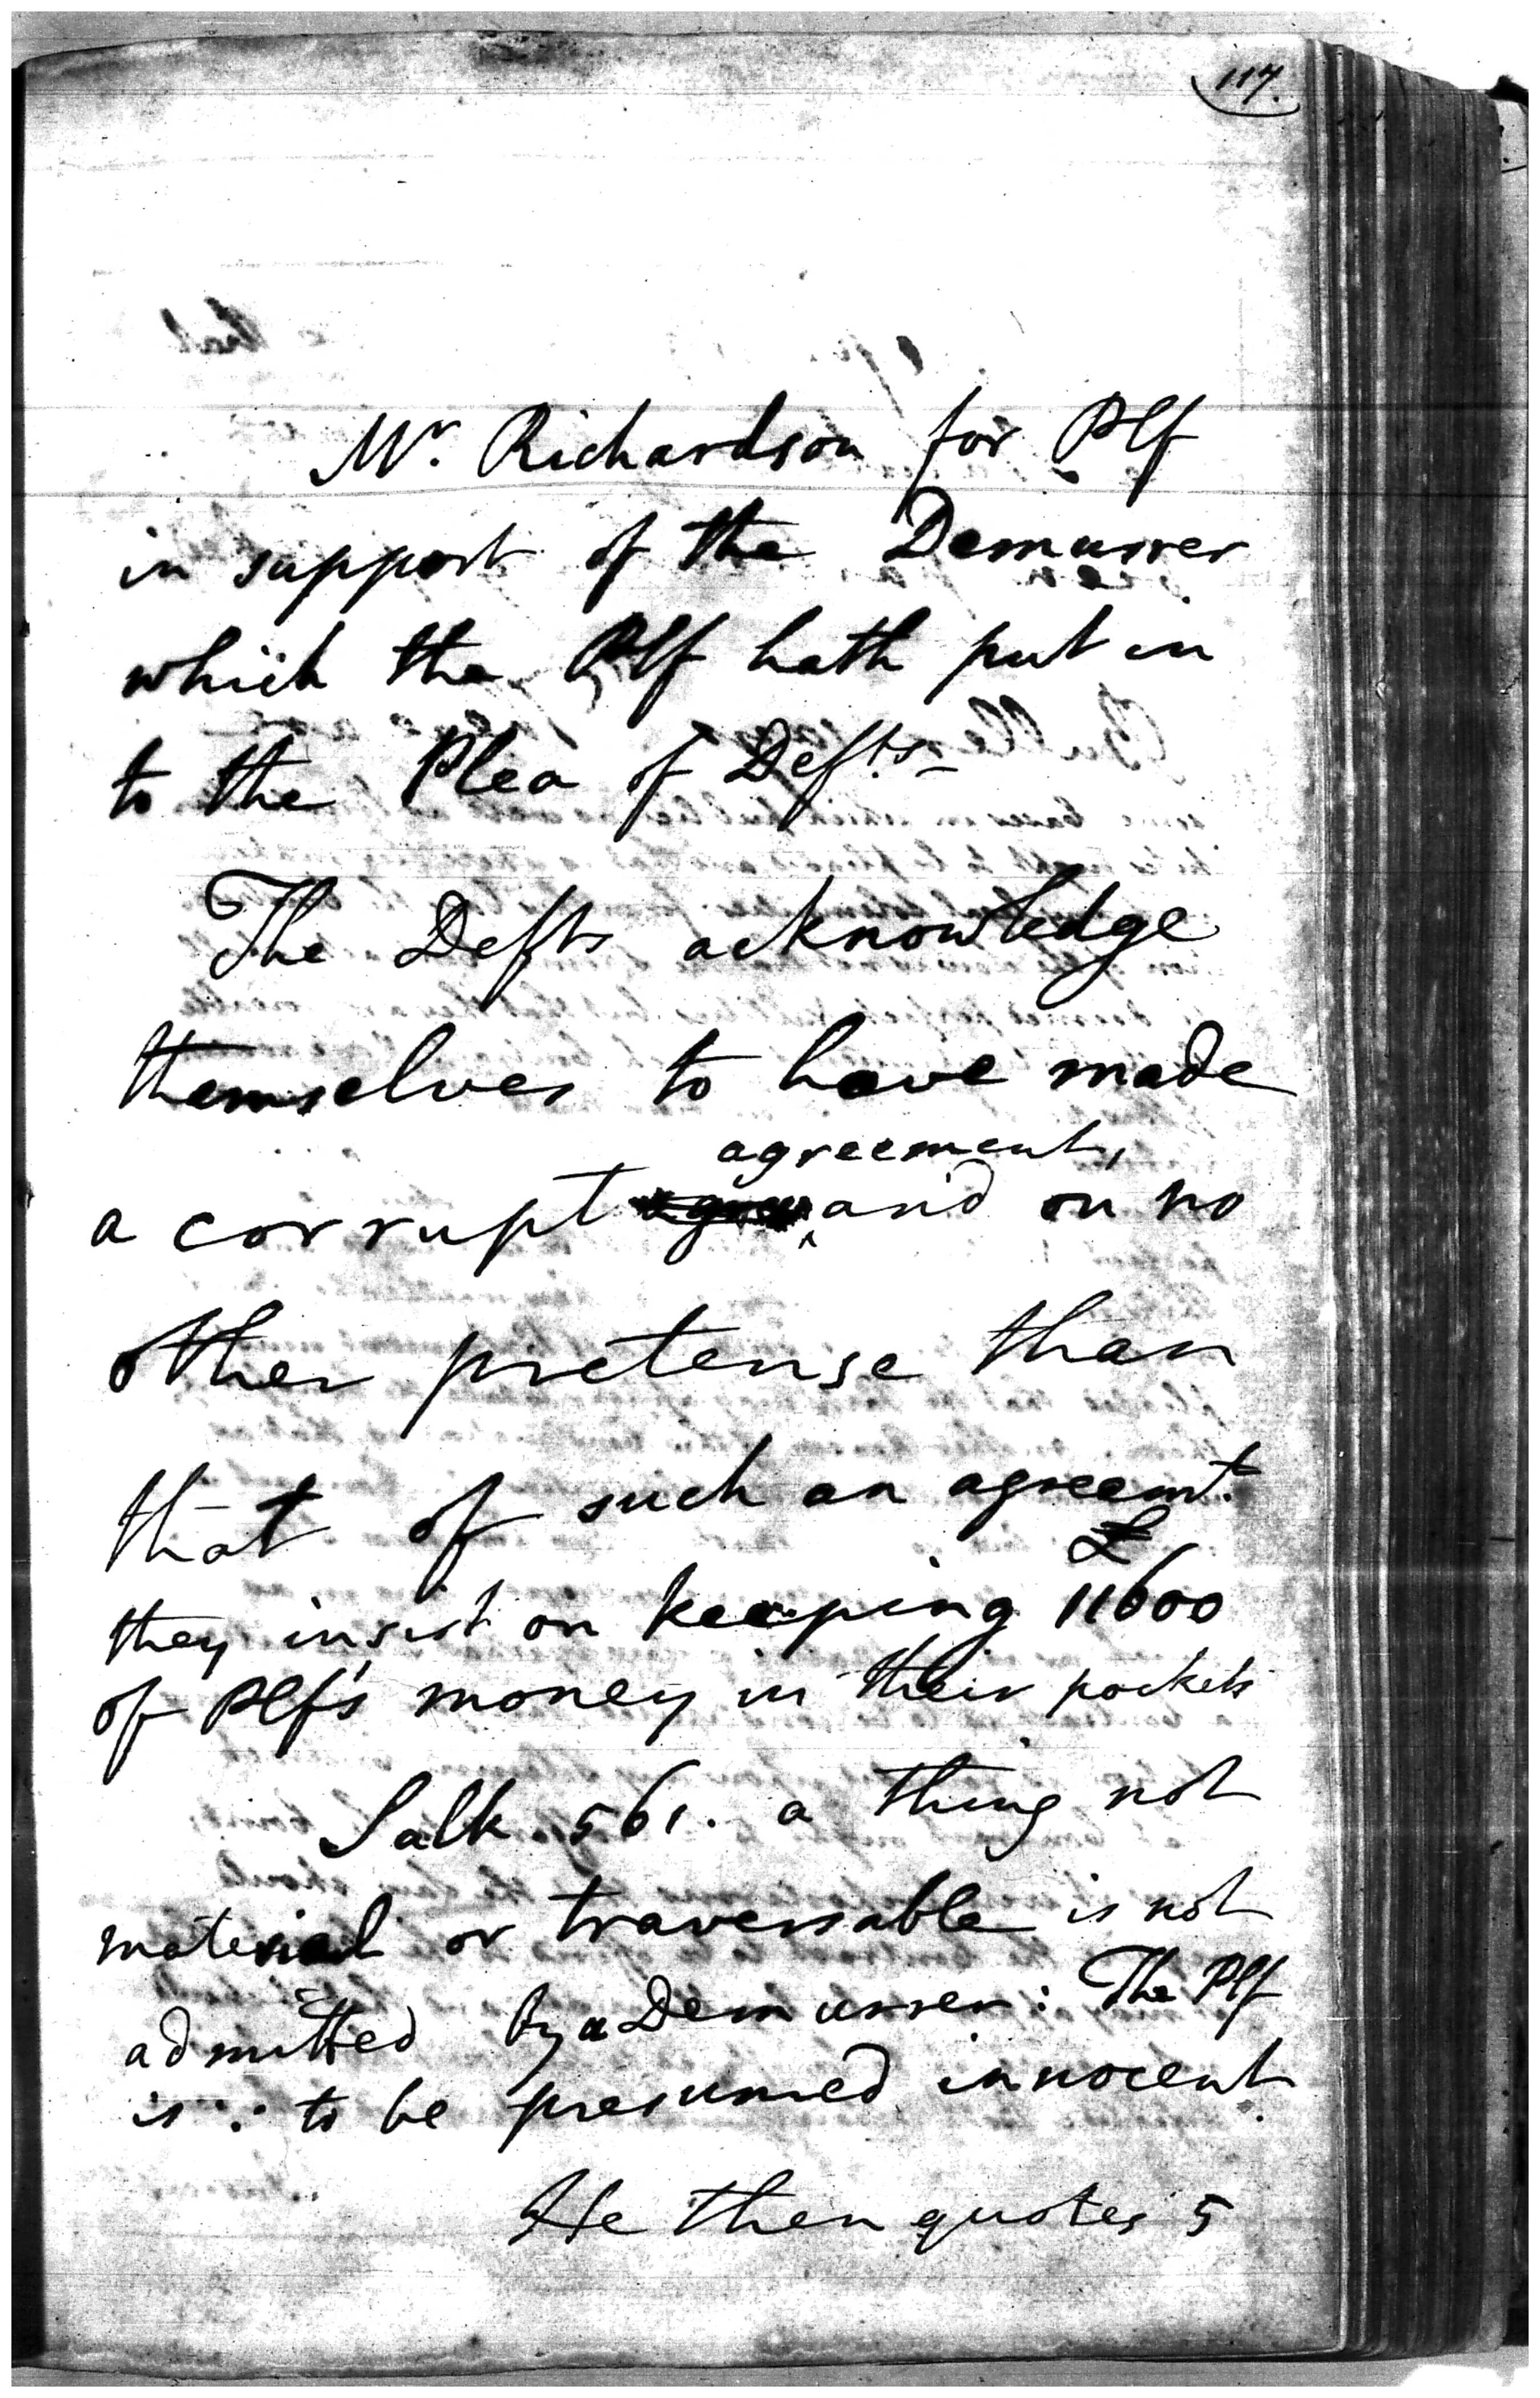 117.
Mr. Richardson for Plf
in support of the Demurrer
which the Plf hath put in
to the Plea of Defts
The Defts acknowledge
themselves to have made
agreement,
a corrupt and on no
other pretense than
that of such an agreemt.
£
they insist on keeping 11600
of Plf's money in their pockets
Salk. 561. a thing not
material or traversable is not
admitted by a Demurrer: The Plf
is ∴ to be presumed innocent.
He then quotes 5